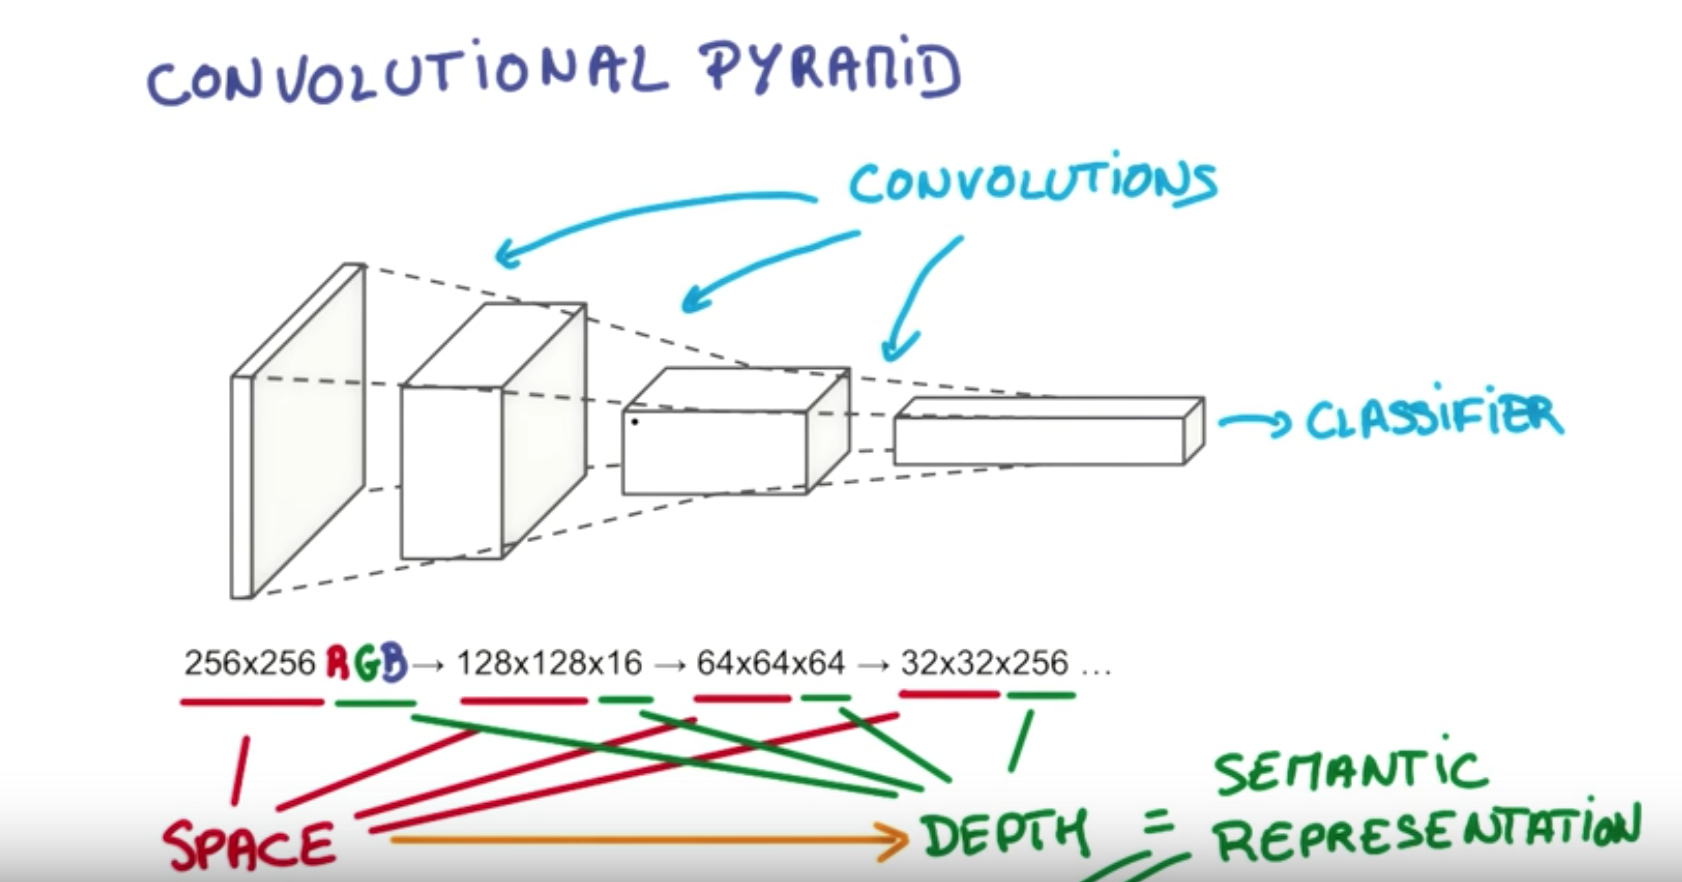 CONVOLUTIONAL PYRAMID
CONVOLUTIONS
CLASSIFIER
256x256 RGB → 128x128x16 → 64x64x64 → 32x32x256 ...
SPACE → DEPTH = SEMANTIC
REPRESENTATION